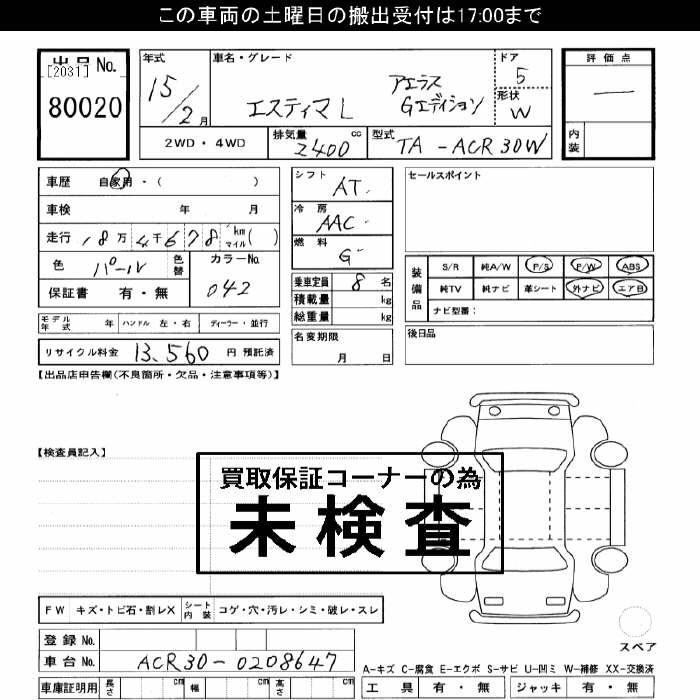 この車両の土曜日の搬出受付は17:00まで
出品 No.
[2031]
80020
年式
15/2月
車名・グレード
エスティマL
アエラス
Gエディション
ドア
5
形状
W
評価点
—
内装
2WD・4WD
排気量
2400 cc
型式
TA-ACR30W
車歴 自家用・( )
車検 年 月
走行 18万4千678 km マイル ( )
色 パール 色替
カラーNo.
042
保証書 有・無
モデル年式 年 ハンドル 左・右 ディーラー・並行
リサイクル料金 13,560 円 預託済
シフト
AT
冷房
AAC
燃料
G
乗車定員 8 名
積載量 kg
総重量 kg
名変期限
月 日
セールスポイント
装備品
S/R 純A/W P/S P/W ABS
純TV 純ナビ 革シート 外ナビ エアB
ナビ型番:
後日品
【出品店申告欄(不良箇所・欠品・注意事項等)】
【検査員記入】
買取保証コーナーの為
未検査
FW キズ・トビ石・割レX シート内装 コゲ・穴・汚レ・シミ・破レ・スレ
登録 No.
車台 No. ACR30-0208647
車庫証明用 長さ cm 幅 cm 高さ cm
スペア
A-キズ C-腐食 E-エクボ S-サビ U-凹ミ W-補修 XX-交換済
工具 有・無 ジャッキ 有・無